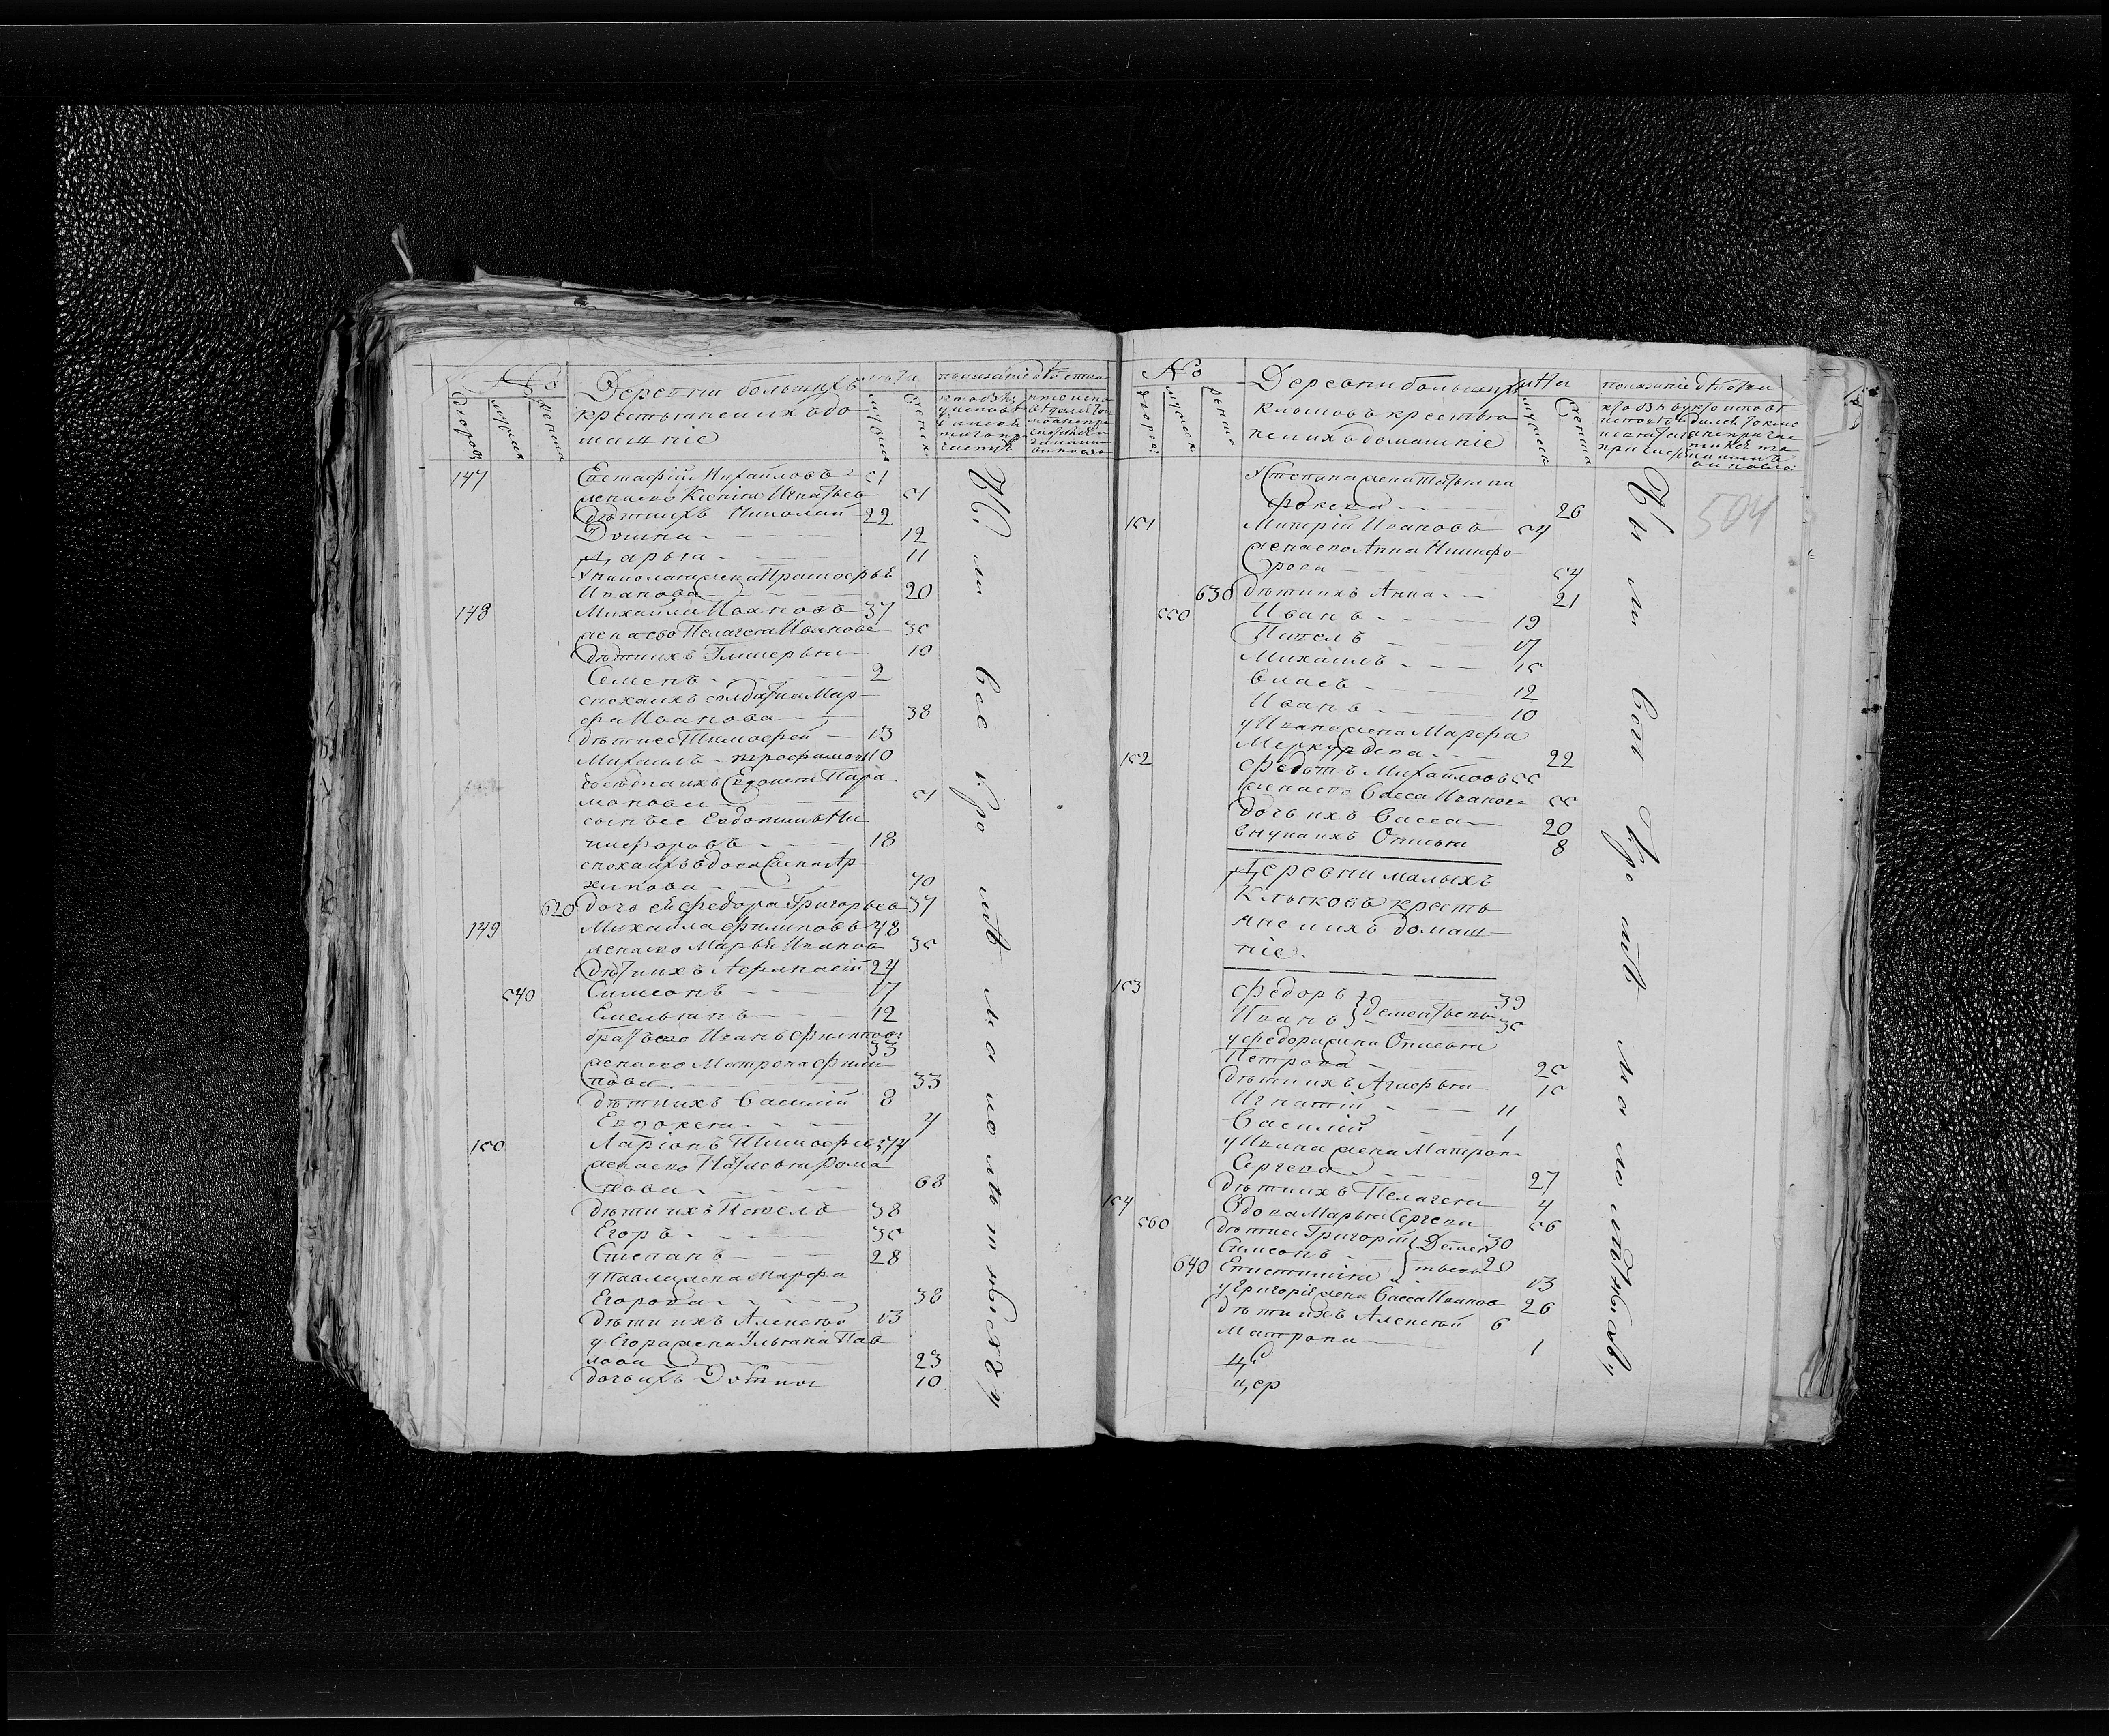 №
дворовъ
мужска
женска
Деревни большихъ
крестьяне и ихъ до
машніе
лѣта
мужска
женска
показаніе дѣйства
147 Евстафій Михайловъ 51
жена его Ксенія Игнатьева 51
Дѣти ихъ Николай 22
Домна 12
Дарья 11
У николая жена Прасковья
Иванова 20
148 Михайла Ивановъ 37
жена его Пелагея Иванова 35
Дѣти ихъ Гликерья 10
Семенъ 2
сноха ихъ солдатка Мар
фа Иванова 38
дѣти ее Тимофей 13
Михаилъ 10
монова 51
сынъ ее Евдокимъ Ни
кифоровъ 18
сноха ихъ вдова Елена Ар
хипова 40
620 дочь ей Федора Григорьева 37
149 Михайла Филиповъ 48
жена его Марья Иванова 35
Дѣти ихъ Афанасій 24
540 Симеонъ 17
Емельянъ 12
братъ его Иванъ Филиповъ
33
жена его Матрона Фили
пова 33
дѣти ихъ Василій 8
Евдокея 4
150 Ларіонъ Тимофеевъ 74
жена его Наталья Рома
нова 68
дѣти ихъ Павелъ 38
Егоръ 35
Степанъ 28
у Павла жена Марфа
Егорова 38
дѣти ихъ Алексѣй 13
у Егора жена Ульяна Пав
лова 23
дочь ихъ Домна 10
Были все кромѣ малолѣтныхъ
№
дворовъ
мужска
женска
Деревни большихъ
Клыковъ крестья
не и ихъ домашніе
лѣта
мужска
женска
показаніе дѣйства
504
У Степана жена Татьяна
Фокева 26
151 Митрій Ивановъ 54
жена его Анна Никифо
рова 54
630 дѣти ихъ Анна 21
550 Иванъ 19
Павелъ 17
Михаилъ 15
Власъ 12
Иванъ 10
у Ивана жена Марфа
Меркурьева 22
152 Федотъ Михайловъ 55
жена его Васса Иванова 55
Дочь ихъ Васса 20
внука ихъ Онисья 8
Деревни малыхъ
Клыковъ кресть
яне и ихъ домаш
ніе.
153 Федоръ 39
Иванъ } Дементьевы 35
у Федора жена Онисья
Петрова 25
дѣти ихъ Агафья 15
Игнатій 11
Василій 1
у Ивана жена Матрона
Сергева 27
дѣти ихъ Пелагея 4
154 Вдова Марья Сергева 56
560 дѣти ее Григорій } Демен 30
Симеонъ тьевы 20
640 Епистимія 13
у Григорія жена Васса Иванова 26
дѣти ихъ Алексѣй 6
Матрона 1
Были все кромѣ малолѣтныхъ